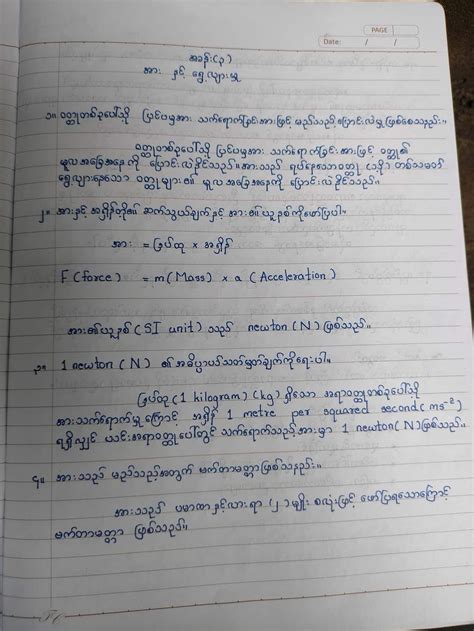 PAGE
Date: / /
အခန်း(၃)
အား နှင့် ရွေ့လျားမှု
၁။ ဝတ္ထုတစ်ခုပေါ်သို့ ပြင်ပမှအား သက်ရောက်ခြင်းအားဖြင့် မည်သည့်ပြောင်းလဲမှု ဖြစ်စေသနည်း။
ဝတ္ထုတစ်ခုပေါ်သို့ ပြင်ပမှအား သက်ရောက်ခြင်းအားဖြင့် ဝတ္ထု၏
မူလအခြေအနေကို ပြောင်းလဲနိုင်သည်။ အားသည် ရပ်နေသောဝတ္ထု (သို့) တစ်သမတ်
ရွေ့လျားနေသော ဝတ္ထုများ၏ မူလ အခြေအနေကို ပြောင်းလဲနိုင်သည်။
၂။ အားနှင့် အရှိန်တို့၏ ဆက်သွယ်ချက်နှင့် အား၏ယူနစ်ကိုဖော်ပြပါ။
အား = ဒြပ်ထု × အရှိန်
F (force) = m (Mass) × a (Acceleration)
အား၏ယူနစ် (SI unit) သည် newton (N) ဖြစ်သည်။
၃။ 1 newton (N) ၏ အဓိပ္ပာယ်သတ်မှတ်ချက်ကိုရေးပါ။
ဒြပ်ထု (1 kilogram) (kg) ရှိသော အရာဝတ္ထုတစ်ခုပေါ်သို့
အားသက်ရောက်မှုကြောင့် အရှိန် 1 metre per squared second (ms⁻²)
ရရှိလျှင် ယင်းအရာဝတ္ထုပေါ်တွင် သက်ရောက်သည့်အားမှာ 1 newton (N) ဖြစ်သည်။
၄။ အားသည် မည်သည့်အတွက် ဗက်တာမတ္တာဖြစ်သနည်း။
အားသည် ပမာဏနှင့်လားရာ (၂) မျိုး စလုံးဖြင့် ဖော်ပြရသောကြောင့်
ဗက်တာမတ္တာ ဖြစ်သည်။